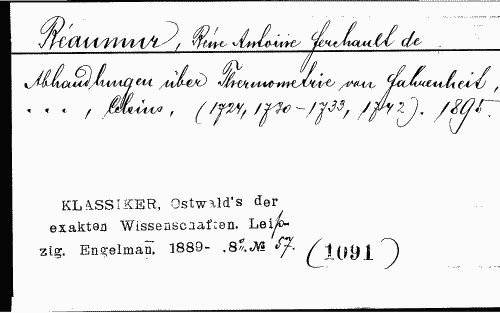 Réaumur, Réné Antoine Ferchault de
Abhandlungen über Thermometrie von Fahrenheit,
. . . , Celsius, (1724, 1730-1733, 1742). 1895.
KLASSIKER, Ostwald's der
exakten Wissenschaften. Leip-
zig. Engelmañ. 1889- .8°. № 57.
(1091)